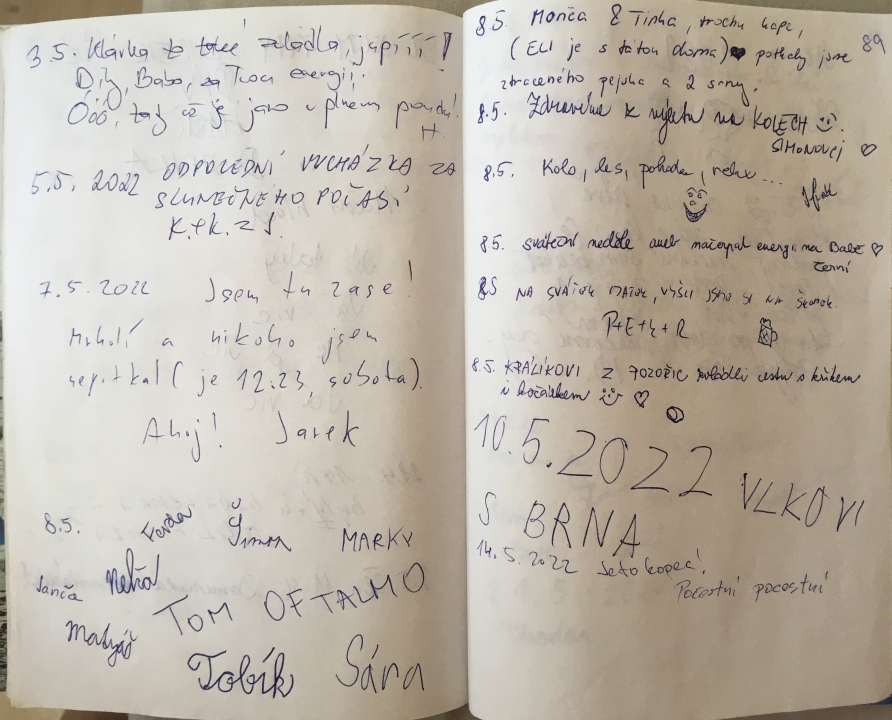 3.5. Klárka to také zvládla, jupííí!
Díky, Babo, za Tvou energii.
Óóó, tady už je jaro v plném proudu!
H.
5.5. 2022 ODPOLEDNÍ VYCHÁZKA ZA
SLUNEČNÉHO POČASÍ
K.+K. z J.
7.5.2022 Jsem tu zase!
Mrholí a nikoho jsem
nepotkal (je 12.23, sobota).
Ahoj! Jarek
8.5. Ferda Šimon MARKY
Janča
TOM OFTALMO
Matyáš
Tobík Sára
89
8.5. Monča & Tinka, trochu kapr,
(ELI je s tátou doma) potkaly jsme
ztraceného pejska a 2 srny.
8.5. Zdravíme k výletu na KOLECH
ŠIMONOVEJ
8.5. Kolo, les, pohoda, relax...
8.5. sváteční neděle aneb načerpat energii na Babě
Černí
8.5 NA SVÁTEK MATEK, VYŠLI JSME SI NA
P+E+L+R
8.5. KRÁLÍKOVI Z zvládli cestu s křikem
i kočárkem
10.5.2022 VLKOVI
S BRNA
14.5.2022 Je to kopec!
Pocestní pocestní